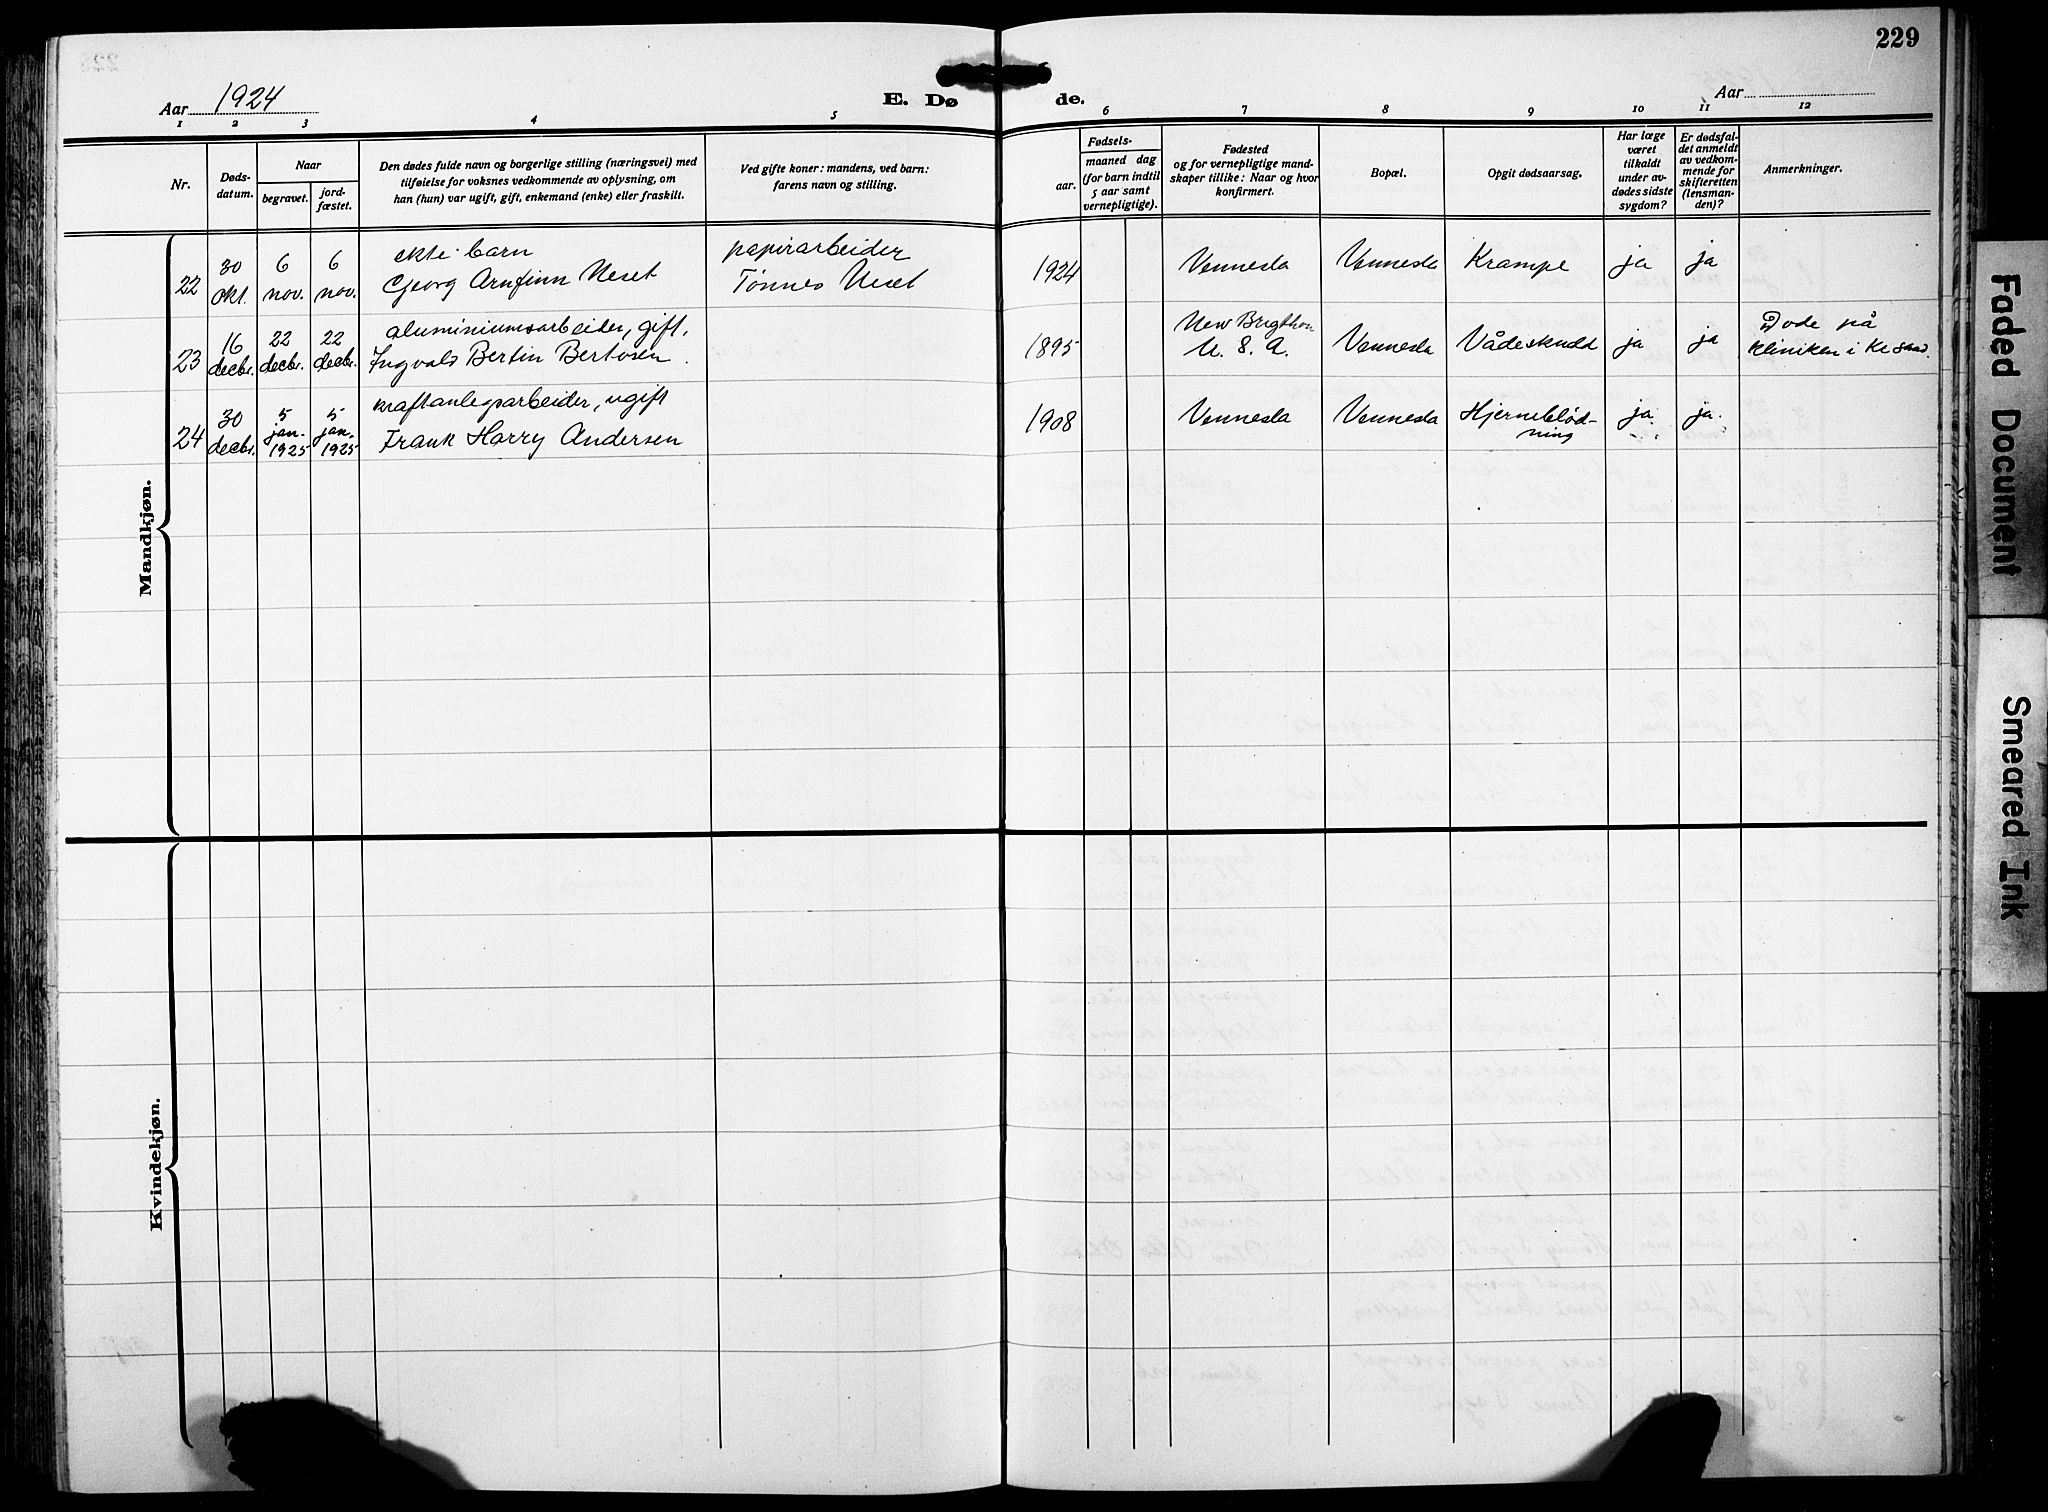 229
Aar 1924
E. Dø
de.
Aar
1 2 3 4 5 6 7 8 9 10 11 12
Nr.
Døds-
datum.
Naar
begravet.
jord-
fæstet.
Den dødes fulde navn og borgerlige stilling (næringsvei) med
tilføielse for voksnes vedkommende av oplysning, om
han (hun) var ugift, gift, enkemand (enke) eller fraskilt.
Ved gifte koner: mandens, ved barn:
farens navn og stilling.
Fødsels-
aar.
maaned dag
(for barn indtil
5 aar samt
vernepligtige).
Fødested
og for vernepligtige mand-
skaper tillike: Naar og hvor
konfirmert.
Bopæl.
Opgit dødsaarsag.
Har læge
været
tilkaldt
under av-
dødes sidste
sygdom?
Er dødsfal-
det anmeldt
av vedkom-
mende for
skifteretten
(lensman-
den)?
Anmerkninger.
Mandkjøn.
22
30
okt.
6
nov.
6
nov.
ekte barn
Georg Arnfinn Neset
papirarbeider
Tønnes Neset
1924
Vennesla
Vennesla
Krampe
ja
ja
23
16
decbr.
22
decbr.
22
decbr.
aluminiumsarbeider, gift.
Ingvald Bertin Bertosen.
1895
New Brigthon
U. S. A.
Vennesla
Vådeskudt
ja
ja
Døde på
kliniken i Kr.sand.
24
30
decbr.
5
jan.
1925
5
jan.
1925
kraftanlegsarbeider, ugift
Frank Harry Andersen
1908
Vennesla
Vennesla
Hjerneblød-
ning
ja.
ja.
Kvindekjøn.
Faded Document
Smeared Ink